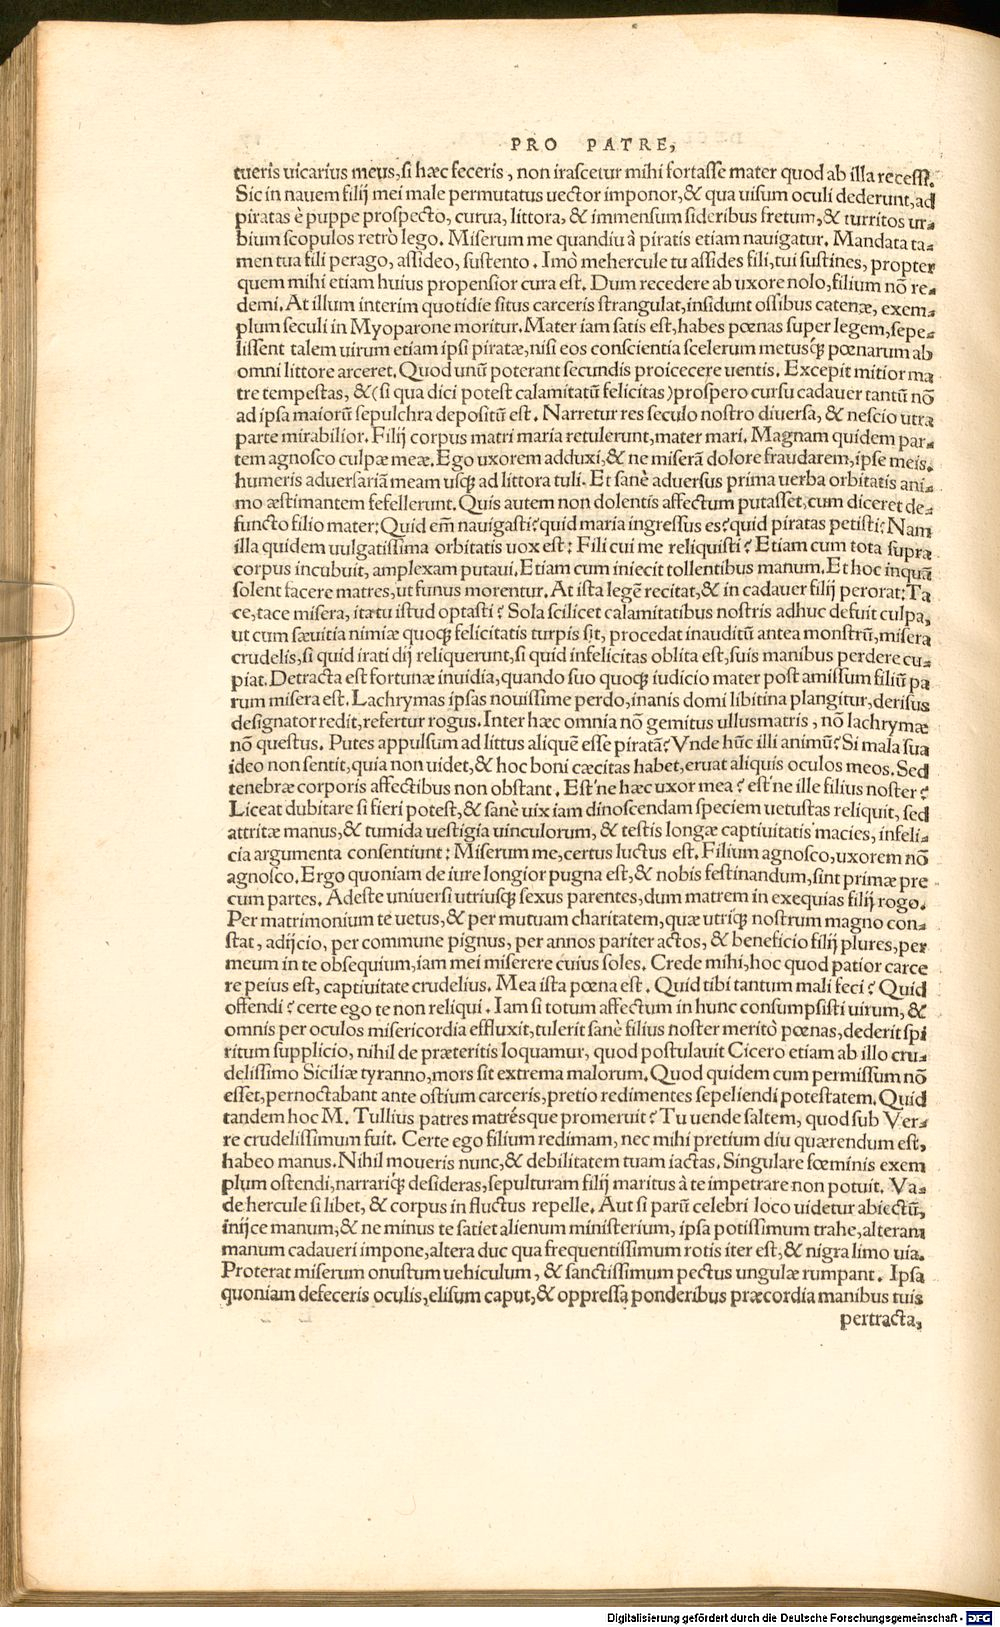 PRO PATRE,
tueris uicarius meus, si hæc feceris, non irascetur mihi fortasse mater quod ab illa recessi.
Sic in nauem filij mei male permutatus uector imponor, & qua uisum oculi dederunt, ad
piratas è puppe prospecto, curua, littora, & immensum sideribus fretum, & turritos ur-
bium scopulos retrò lego. Miserum me quandiu à piratis etiam nauigatur. Mandata ta-
men tua fili perago, assideo, sustento. Imò mehercule tu assides fili, tui sustines, propter
quem mihi etiam huius propensior cura est. Dum recedere ab uxore nolo, filium nõ re-
demi. At illum interim quotidie situs carceris strangulat, insidunt ossibus catenæ, exem-
plum seculi in Myoparone moritur. Mater iam satis est, habes pœnas super legem, sepe-
lissent talem uirum etiam ipsi piratæ, nisi eos conscientia scelerum metusq́; pœnarum ab
omni littore arceret. Quod unũ poterant secundis proiicecere uentis. Excepit mitior ma
tre tempestas, & (si qua dici potest calamitatũ felicitas) prospero cursu cadauer tantũ nõ
ad ipsa maiorũ sepulchra depositũ est. Narretur res seculo nostro diuersa, & nescio utra
parte mirabilior. Filij corpus matri maria retulerunt, mater mari. Magnam quidem par-
tem agnosco culpæ meæ. Ego uxorem adduxi, & ne miserã dolore fraudarem, ipse meis
humeris aduersariã meam usq; ad littora tuli. Et sanè aduersus prima uerba orbitatis ani-
mo æstimantem fefellerunt. Quis autem non dolentis affectum putasset, cum diceret de-
functo filio mater: Quid em̃ nauigasti? quid maria ingressus es? quid piratas petisti? Nam
illa quidem uulgatissima orbitatis uox est: Fili cui me reliquisti? Etiam cum tota supra
corpus incubuit, amplexam putaui. Etiam cum iniecit tollentibus manum. Et hoc inquã
solent facere matres, ut funus morentur. At ista legẽ recitat, & in cadauer filij perorat: Ta
ce, tace misera, ita tu istud optasti? Sola scilicet calamitatibus nostris adhuc defuit culpa,
ut cum sæuitia nimiæ quoq; felicitatis turpis sit, procedat inauditũ antea monstrũ, misera
crudelis, si quid irati dij reliquerunt, si quid infelicitas oblita est, suis manibus perdere cu-
piat. Detracta est fortunæ inuidia, quando suo quoq; iudicio mater post amissum filiũ pa
rum misera est. Lachrymas ipsas nouissime perdo, inanis domi libitina plangitur, derisus
designator redit, refertur rogus. Inter hæc omnia nõ gemitus ullus matris, nõ lachrymæ
nõ questus. Putes appulsum ad littus aliquẽ esse piratã? Vnde hũc illi animũ? Si mala sua
ideo non sentit, quia non uidet, & hoc boni cæcitas habet, eruat aliquis oculos meos. Sed
tenebræ corporis affectibus non obstant. Est'ne hæc uxor mea? est'ne ille filius noster?
Liceat dubitare si fieri potest, & sanè uix iam dinoscendam speciem uetustas reliquit, sed
attritæ manus, & tumida uestigia uinculorum, & testis longæ captiuitatis macies, infeli-
cia argumenta consentiunt: Miserum me, certus luctus est. Filium agnosco, uxorem nõ
agnosco. Ergo quoniam de iure longior pugna est, & nobis festinandum, sint primæ pre
cum partes. Adeste uniuersi utriusq; sexus parentes, dum matrem in exequias filij rogo.
Per matrimonium te uetus, & per mutuam charitatem, quæ utriq; nostrum magno con-
stat, adijcio, per commune pignus, per annos pariter actos, & beneficio filij plures, per
meum in te obsequium, iam mei miserere cuius soles. Crede mihi, hoc quod patior carce
re peius est, captiuitate crudelius. Mea ista pœna est. Quid tibi tantum mali feci? Quid
offendi? certe ego te non reliqui. Iam si totum affectum in hunc consumpsisti uirum, &
omnis per oculos misericordia effluxit, tulerit sanè filius noster meritò pœnas, dederit spi
ritum supplicio, nihil de præteritis loquamur, quod postulauit Cicero etiam ab illo cru-
delissimo Siciliæ tyranno, mors sit extrema malorum. Quod quidem cum permissum nõ
esset, pernoctabant ante ostium carceris, pretio redimentes sepeliendi potestatem. Quid
tandem hoc M. Tullius patres matrésque promeruit? Tu uende saltem, quod sub Ver-
re crudelissimum fuit. Certe ego filium redimam, nec mihi pretium diu quærendum est,
habeo manus. Nihil moueris nunc, & debilitatem tuam iactas. Singulare fœminis exem
plum ostendi, narrariq́; desideras, sepulturam filij maritus à te impetrare non potuit. Va-
de hercule si libet, & corpus in fluctus repelle. Aut si parũ celebri loco uidetur abiectũ,
inijce manum, & ne minus te satiet alienum ministerium, ipsa potissimum trahe, alteram
manum cadaueri impone, altera duc qua frequentissimum rotis iter est, & nigra limo uia.
Proterat miserum onustum uehiculum, & sanctissimum pectus ungulæ rumpant. Ipsa
quoniam defeceris oculis, elisum caput, & oppressa ponderibus præcordia manibus tuis
pertracta,
Digitalisierung gefördert durch die Deutsche Forschungsgemeinschaft - DFG